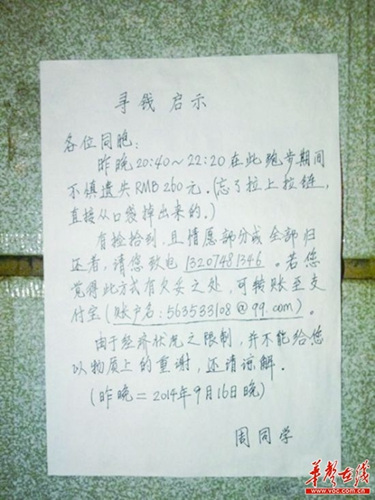 寻钱启示
各位同胞:
昨晚20:40~22:20在此跑步期间
不慎遗失RMB260元.(忘了拉上拉链,
直接从口袋掉出来的.)
有捡拾到,且情愿部分或全部归
还者,请您致电13207481346.若您
觉得此方式有欠妥之处,可转账至支
付宝(账户名:563533108@qq.com).
由于经济状况之限制,并不能给您
以物质上的重谢,还请谅解.
(昨晚=2014年9月16日晚)
周同学
华声在线
www.voc.com.cn